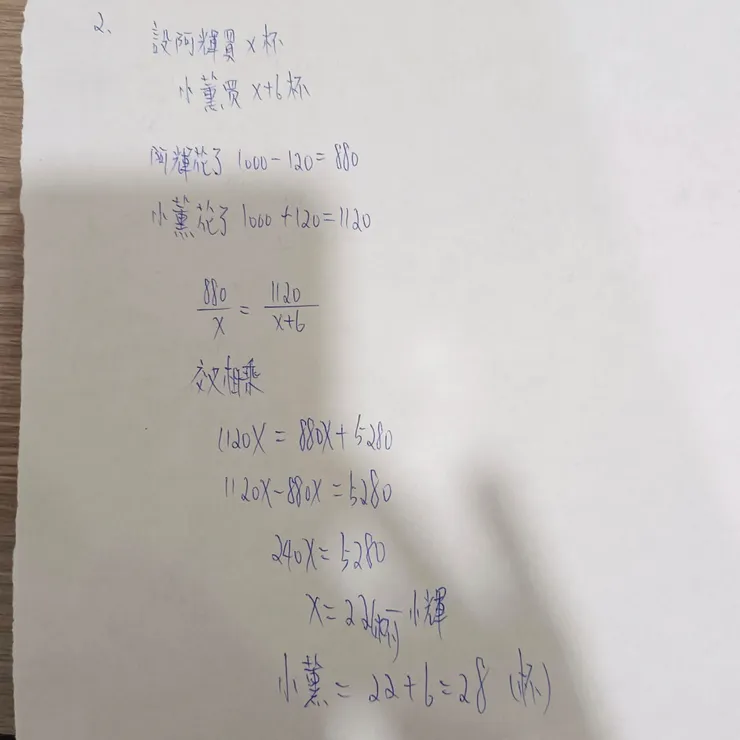 2、
設阿輝買 x 杯
小薰買 x+6 杯
阿輝花了 1000-120=880
小薰花了 1000+120=1120
880/x = 1120/x+6
交叉相乘
1120X = 880X+5280
1120X-880X=5280
240X=5280
X=22(杯) 小輝
小薰= 22+6=28 (杯)